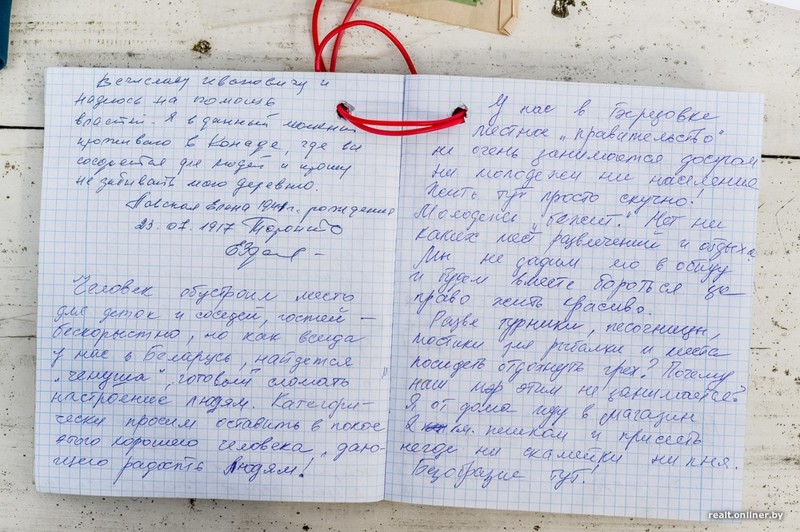 Вечиславу Ивановичу и
надеюсь на помощь
властей. Я в данный момент
проживаю в Канаде, где вы
создается для людей и прошу
не забывать мою деревню.
Елена 1941г. рождения
23.07.1917 Торонто
Человек обустроил место
для деток и соседей, гостей –
бескорыстно, но как всегда
у нас в Беларусь, найдется
"чинуша", готовый сломать
настроение людям. Категори-
чески просим оставить в покое
этого хорошего человека, даю-
щего радость людям!
У нас в Березовке
местное "правительство"
не очень занимается досугом
ни молодежи ни население
Жить тут просто скучно!
Молодежи Нет ни
каких мест развлечений и отдыха
Мы не дадим его в обиду
и будем вместе бороться за
право жить красиво.
Разве турники, песочницы,
мостики для рыбалки и места
посидеть отдохнуть грех? Почему
наш мэр этим не занимается?
Я от дома иду в магазин
2 км. пешком и присесть
негде ни скамейки ни пня.
Безобразие тут!
realt.onliner.by